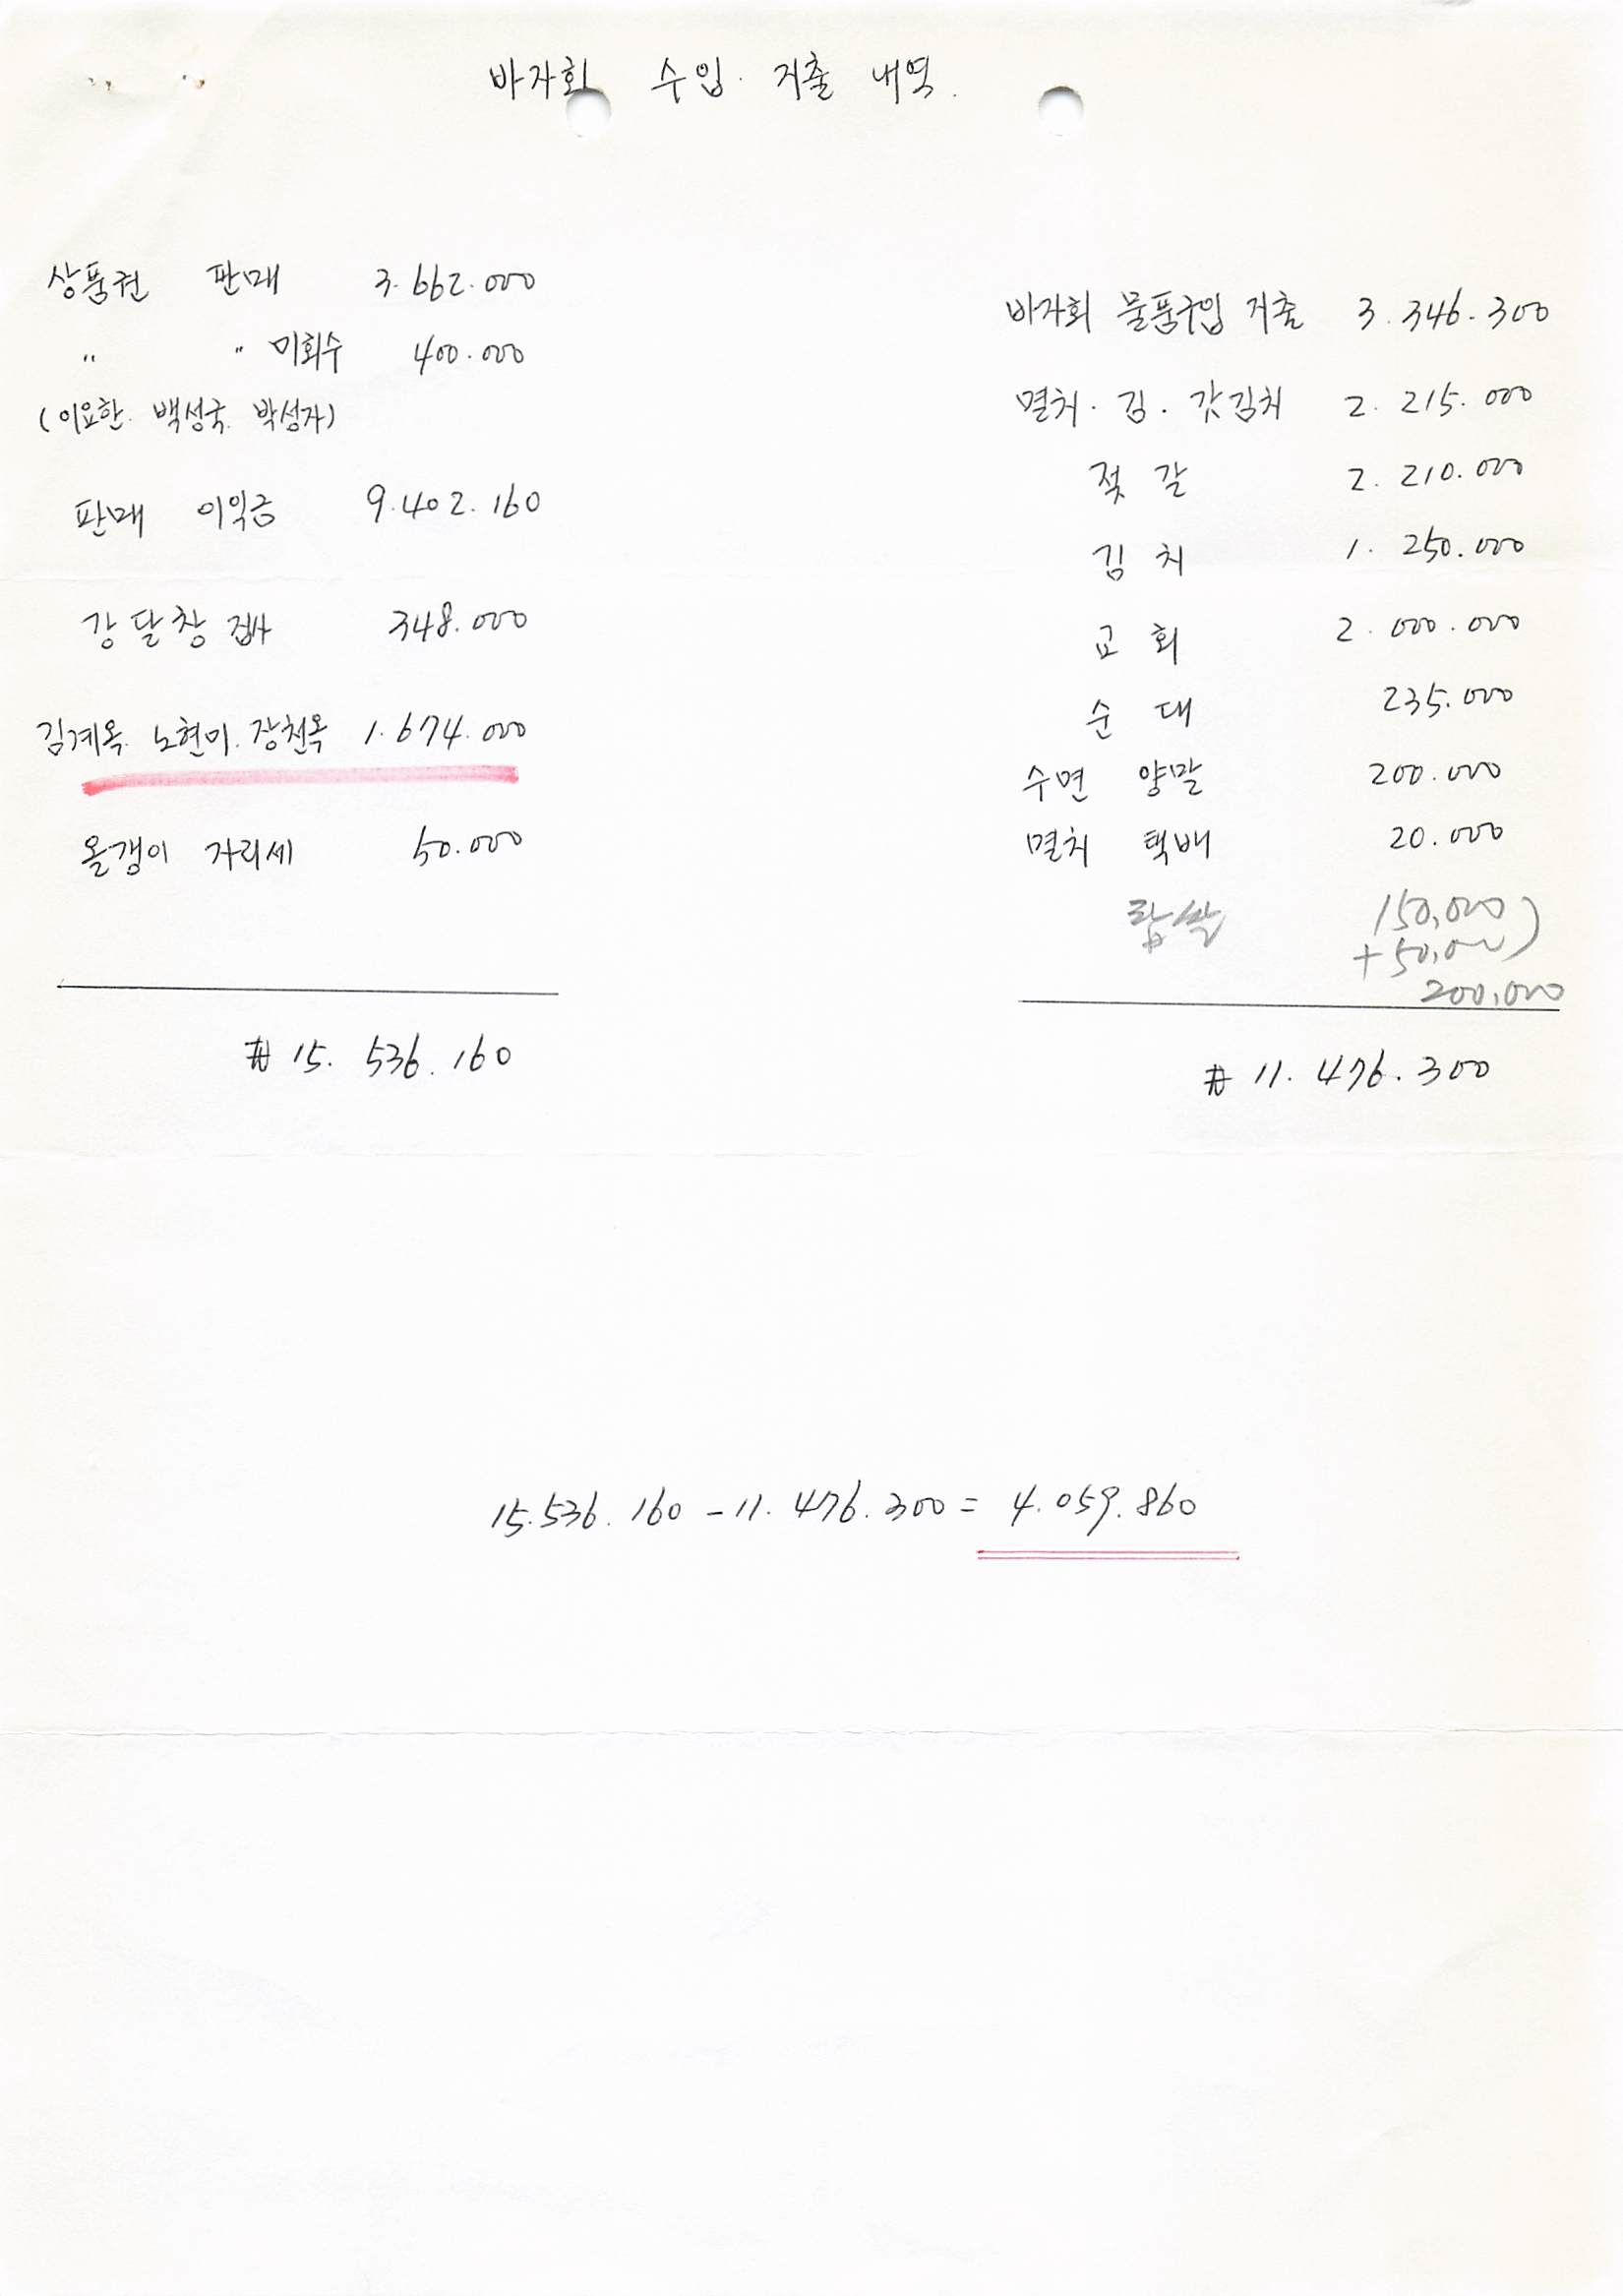 바자회 수입. 지출 내역.
상품권 판매 3.662.000
〃 〃 미회수 400.000
(이요한. 백성국. 박성자)
판매 이익금 9.402.160
강달창 집사 348.000
김계옥. 노현미. 장천옥 1.674.000
올갱이 자리세 50.000
# 15. 536. 160
바자회 물품구입 지출 3. 346. 300
멸치. 김. 갓김치 2. 215. 000
젓갈 2. 210. 000
김치 1. 250. 000
교회 2. 000. 000
순대 235. 000
수면 양말 200. 000
멸치 택배 20. 000
찹쌀 150,000)
+50,000)
200,000
# 11. 476. 300
15.536. 160 - 11. 476. 300 = 4. 059. 860